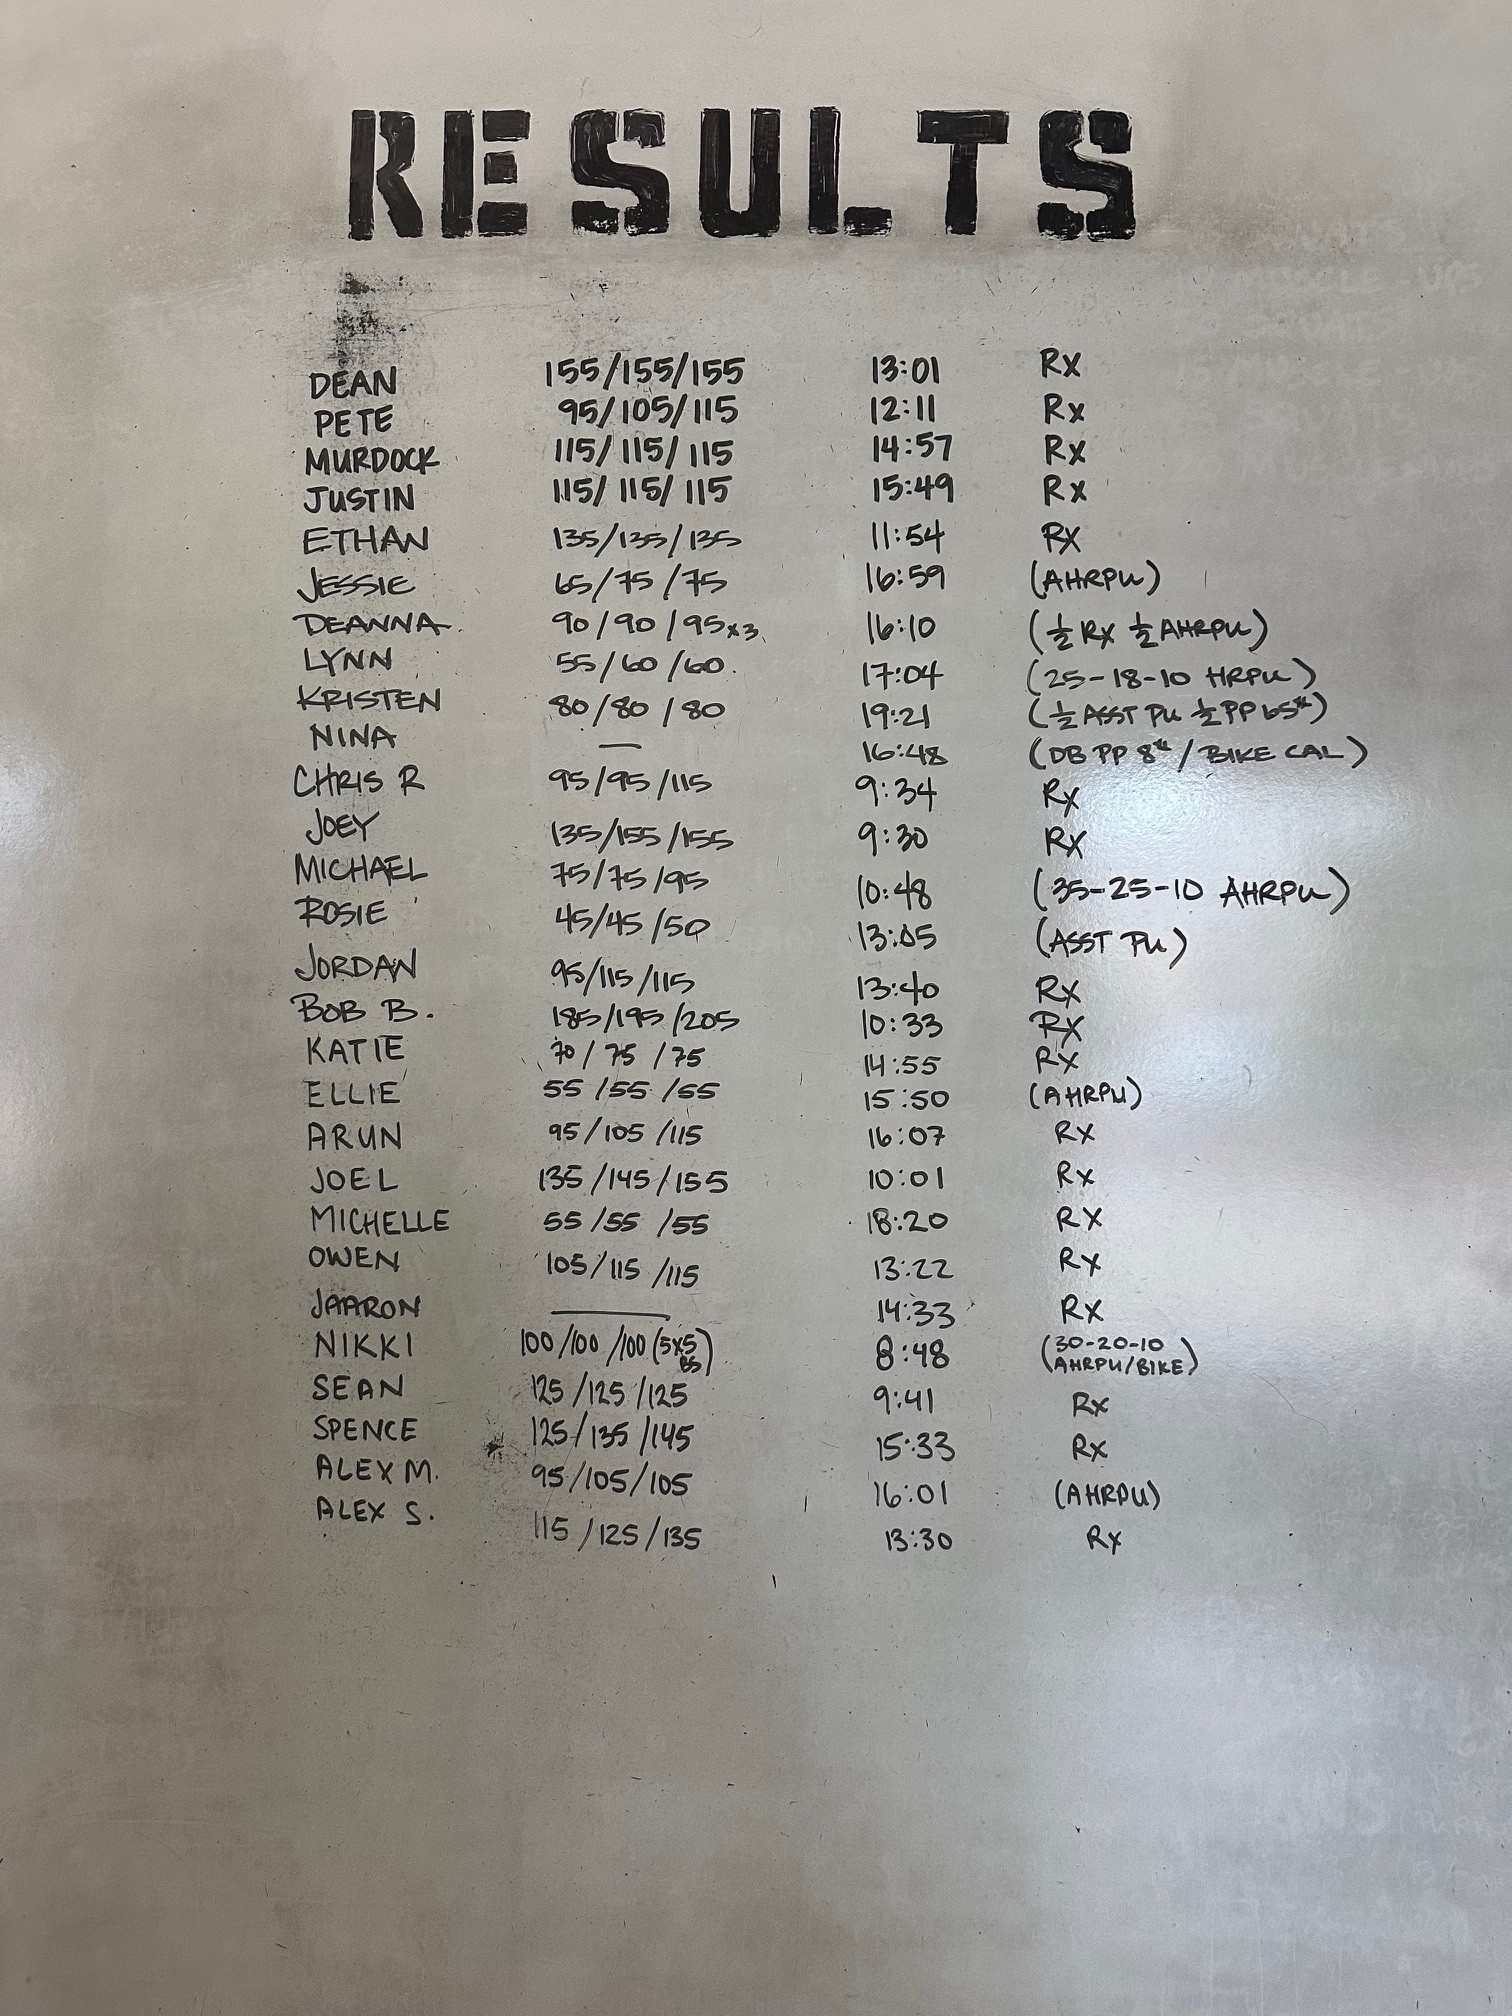 RESULTS
DEAN 155/155/155 13:01 Rx
PETE 95/105/115 12:11 Rx
MURDOCK 115/115/115 14:57 Rx
JUSTIN 115/115/115 15:49 Rx
ETHAN 135/135/135 11:54 Rx
JESSIE 65/75/75 16:59 (AHRPU)
DEANNA 90/90/95x3 16:10 (½ Rx ½ AHRPU)
LYNN 55/60/60 17:04 (25-18-10 HRPU)
KRISTEN 80/80/80 19:21 (½ ASST PU ½ PP 65#)
NINA — 16:48 (DB PP 8# / BIKE CAL)
CHRIS R 95/95/115 9:34 Rx
JOEY 135/155/155 9:30 Rx
MICHAEL 75/75/95 10:48 (35-25-10 AHRPU)
ROSIE 45/45/50 13:05 (ASST PU)
JORDAN 95/115/115 13:40 Rx
BOB B. 185/195/205 10:33 Rx
KATIE 70/75/75 14:55 Rx
ELLIE 55/55/55 15:50 (AHRPU)
ARUN 95/105/115 16:07 Rx
JOEL 135/145/155 10:01 Rx
MICHELLE 55/55/55 18:20 RX
OWEN 105/115/115 13:22 Rx
JAARON — 14:33 Rx
NIKKI 100/100/100 (5x5 BS) 8:48 (30-20-10 AHRPU/BIKE)
SEAN 125/125/125 9:41 Rx
SPENCE 125/135/145 15:33 Rx
ALEX M. 95/105/105 16:01 (AHRPU)
ALEX S. 115/125/135 13:30 Rx